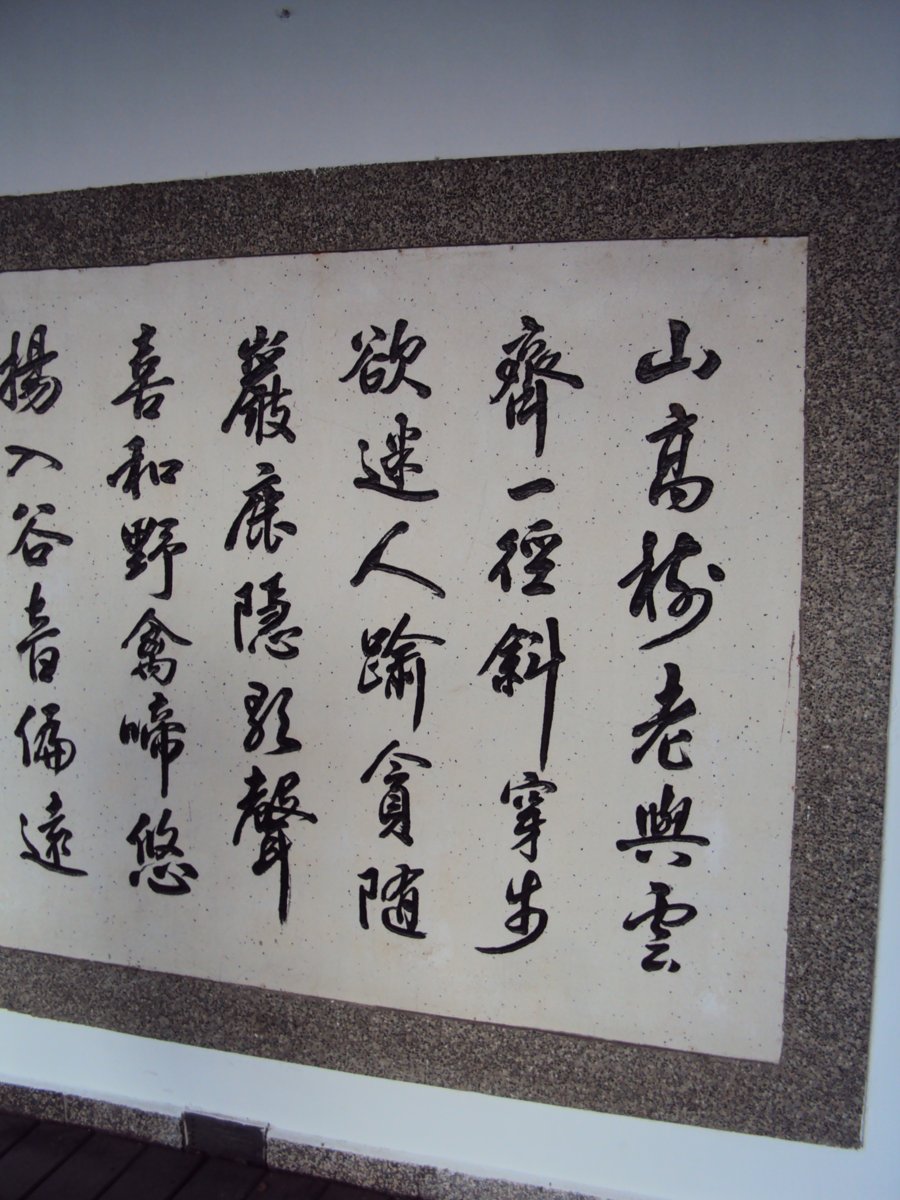 山高樹老與雲
齊一徑斜穿步
欲迷人踰貪隨
巖鹿隱歌聲
喜和野禽啼悠
揚入谷音偏遠